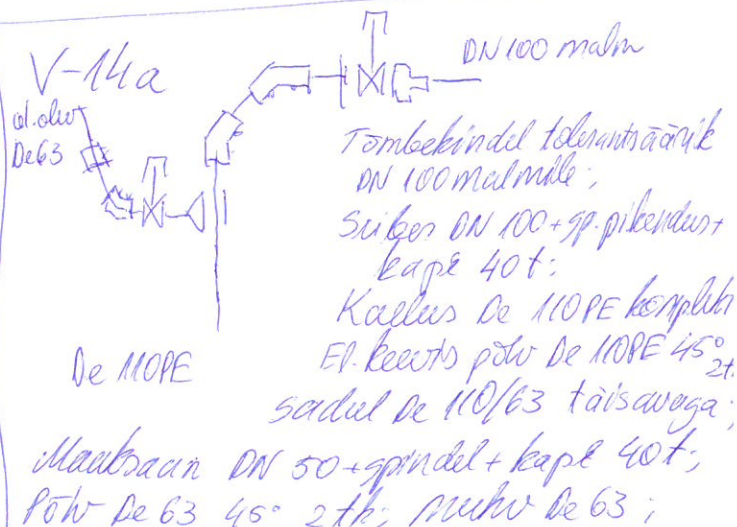 V-14a
DN 100 malm
ol. olev
De63
Tõmbekindel tolerantsäärik
DN 100 malmile;
Siiber DN 100 + sp. pikendus +
kape 40t;
Kaelus De 110PE komplekt
De 110PE
EL. keevis põlv De 110PE 45° 2t.
sadul De 110/63 täisavaga;
Maakraan DN 50 + spindel + kape 40t;
Põlv De 63 45° 2tk; muhv De 63;